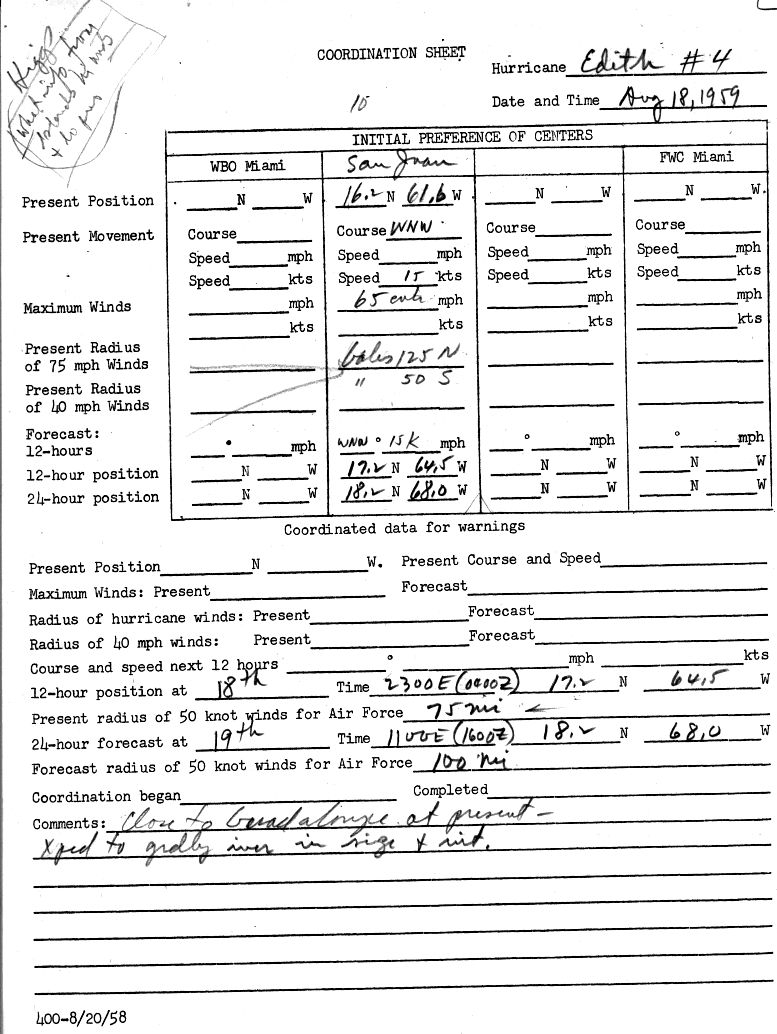 Higgs
What info from
Islands by
COORDINATION SHEET
Hurricane Edith #4
10
Date and Time Aug 18, 1959
INITIAL PREFERENCE OF CENTERS
WBO Miami San Juan FWC Miami
Present Position N W 16.2 N 61.6 W N W N W.
Present Movement Course Course WNW Course Course
Speed mph Speed mph Speed mph Speed mph
Speed kts Speed 15 kts Speed kts Speed kts
Maximum Winds mph 65 mph mph mph
kts kts kts kts
Present Radius
of 75 mph Winds Gales 125 N
Present Radius " 50 S
of 40 mph Winds
Forecast:
12-hours ° mph WNW ° 15K mph ° mph ° mph
12-hour position N W 17.2 N 64.5 W N W N W
24-hour position N W 18.2 N 68.0 W N W N W
Coordinated data for warnings
Present Position N W. Present Course and Speed
Maximum Winds: Present Forecast
Radius of hurricane winds: Present Forecast
Radius of 40 mph winds: Present Forecast
Course and speed next 12 hours ° mph kts
12-hour position at 18th Time 2300E (0400Z) 17.2 N 64.5 W
Present radius of 50 knot winds for Air Force 75 mi ←
24-hour forecast at 19th Time 1100E (1600Z) 18.2 N 68.0 W
Forecast radius of 50 knot winds for Air Force 100 mi
Coordination began Completed
Comments: Close to Guadaloupe at present –
Xped to gradly incr in size & int.
400-8/20/58